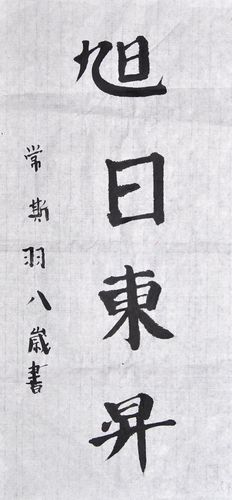 旭日東昇
常斯羽八歲書